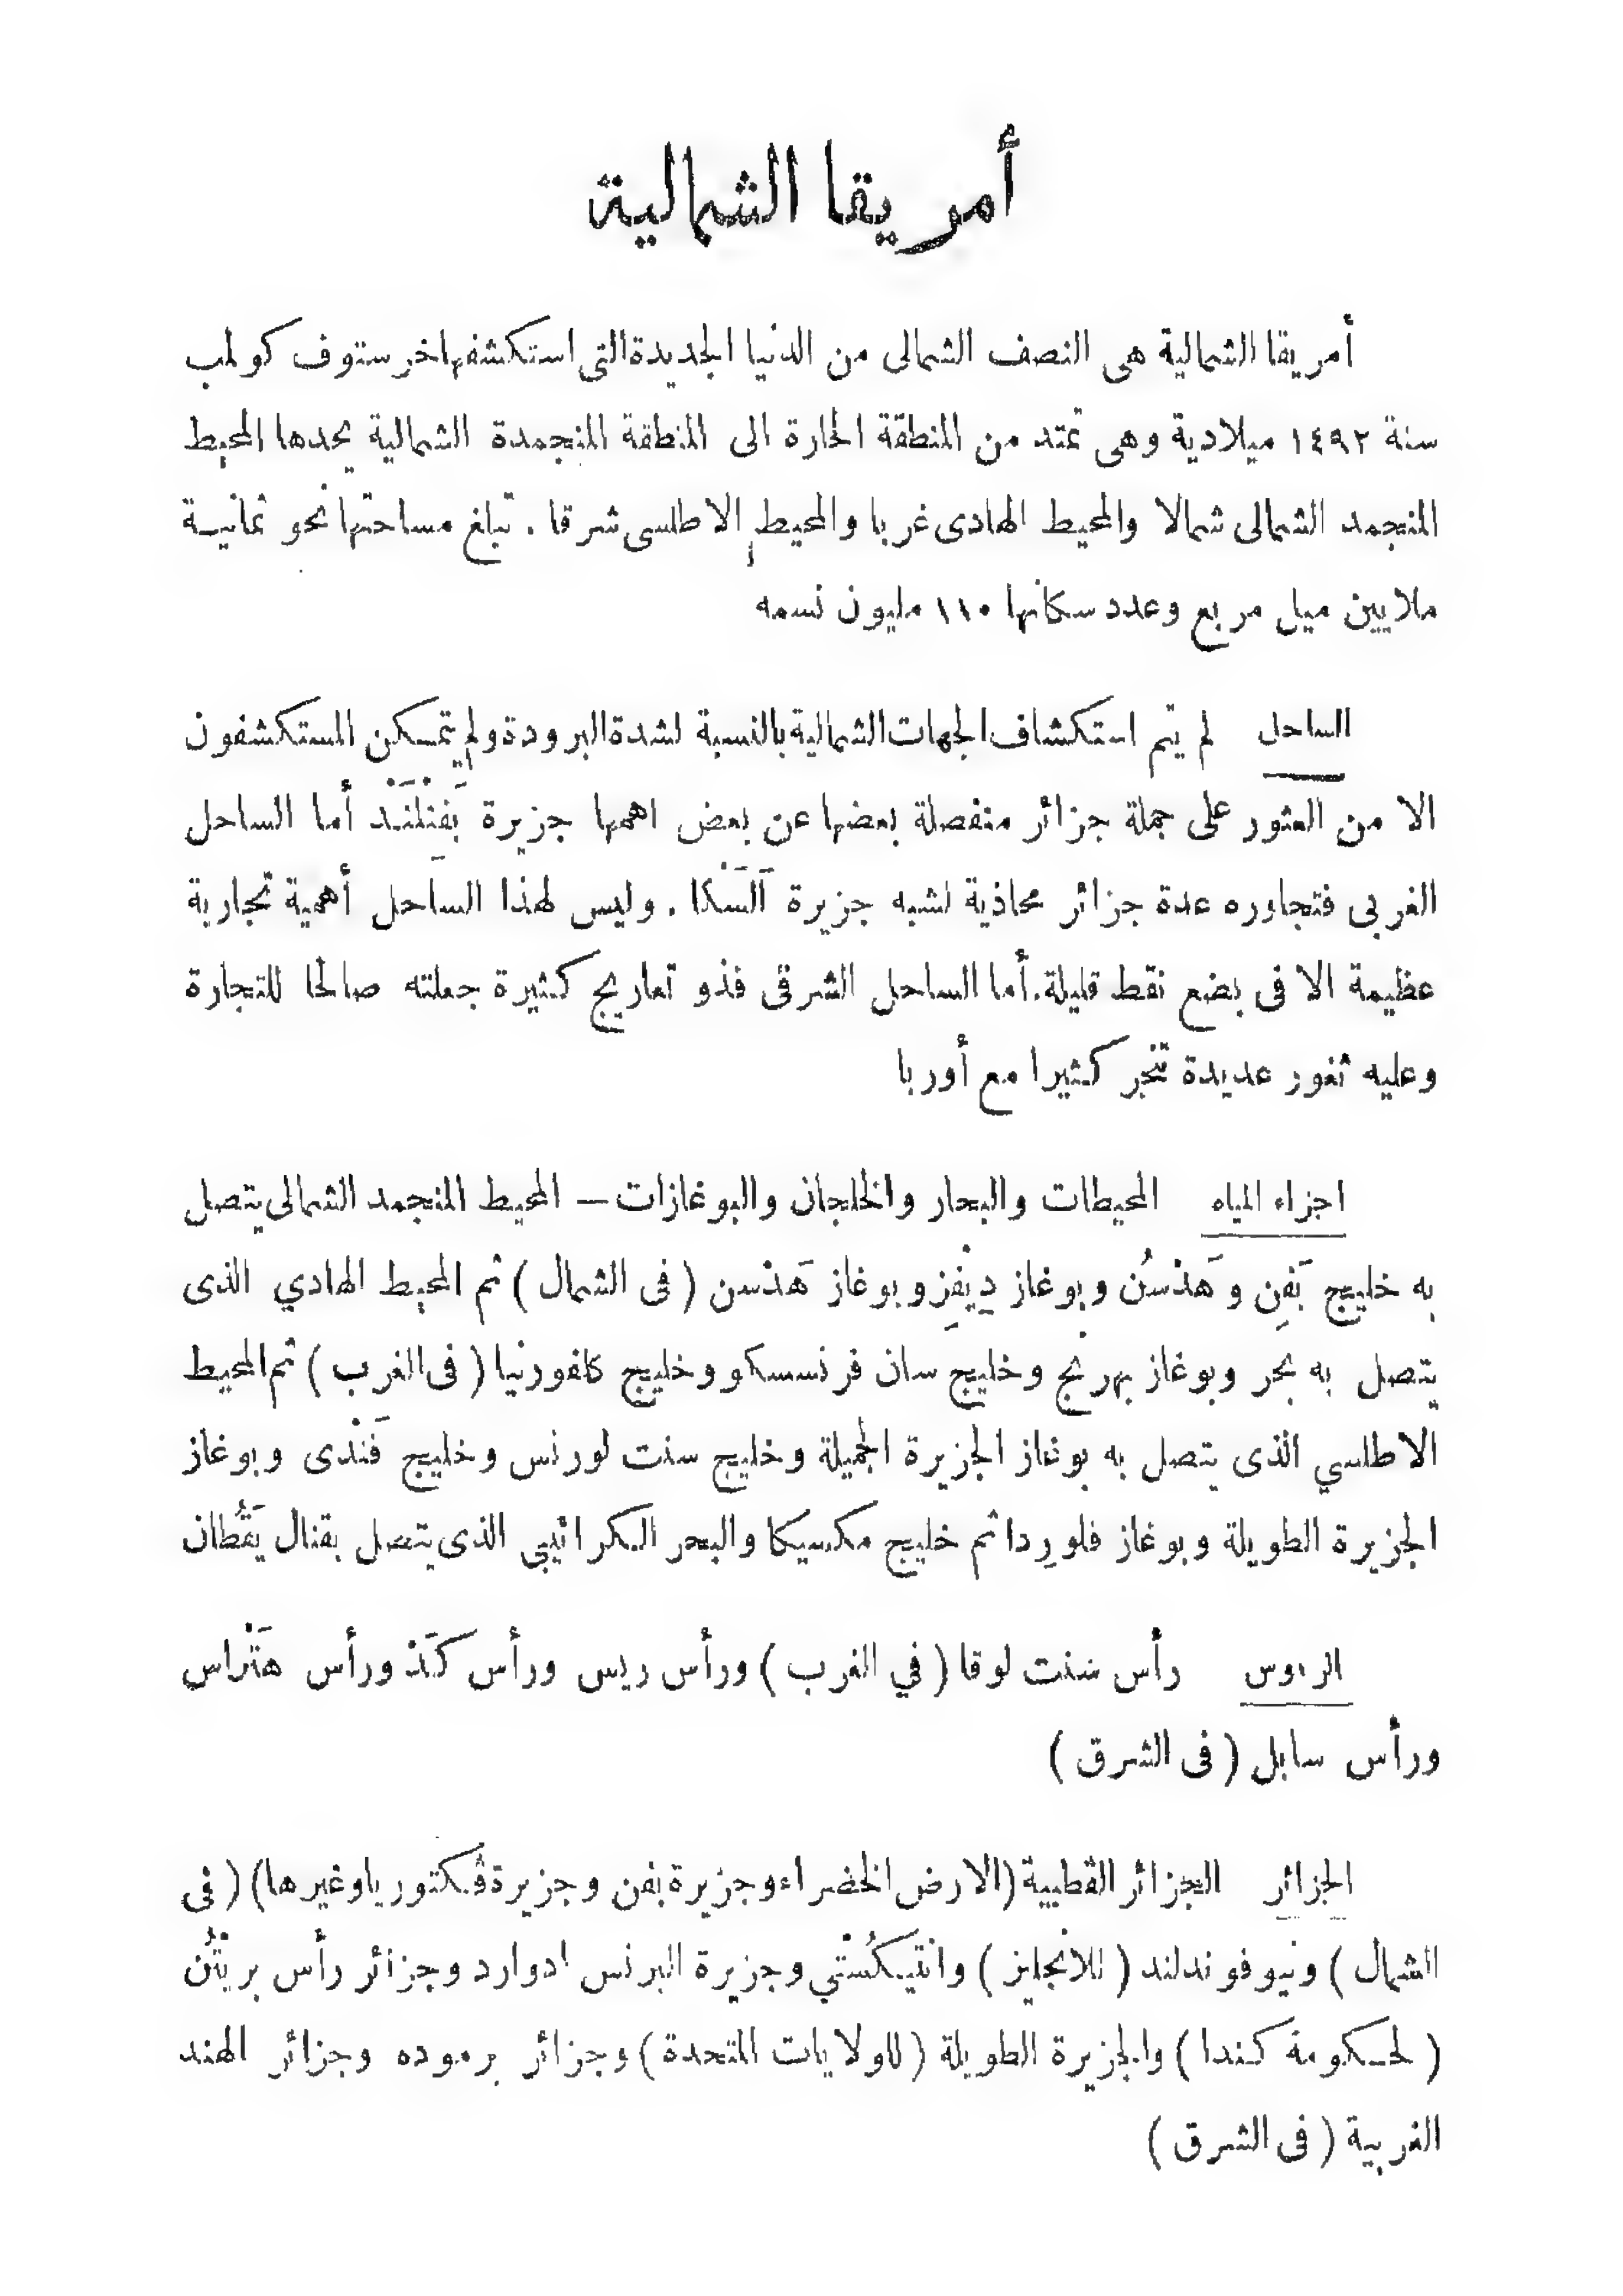 أمريقا الشمالية
أمريقا الشمالية هى النصف الشمالى من الدنيا الجديدة التى استكشفها خرستوف كولمب
سنة ١٤٩٢ ميلادية وهى تمتد من المنطقة الحارة الى المنطقة المنجمدة الشمالية يحدها المحيط
المنجمد الشمالى شمالا والمحيط الهادى غربا والمحيط الاطلسى شرقا . تبلغ مساحتها نحو ثمانية
ملايين ميل مربع وعدد سكانها ١١٠ مليون نسمه
الساحل لم يتم استكشاف الجهات الشمالية بالنسبة لشدة البرودة ولم يتمكن المستكشفون
الا من العثور على جملة جزائر منفصلة بعضها عن بعض اهمها جزيرة بَفنْلَنْد أما الساحل
الغربى فتجاوره عدة جزائر محاذية لشبه جزيرة آلَسْكا . وليس لهذا الساحل أهمية تجارية
عظيمة الا فى بضع نقط قليلة . أما الساحل الشرقى فذو تعاريج كثيرة جعلته صالحا للتجارة
وعليه ثغور عديدة تتجر كثيرا مع أوربا
اجزاء المياه المحيطات والبحار والخلجان والبوغازات — المحيط المنجمد الشمالى يتصل
به خليج بَفِن و هَدْسُن وبوغاز دِيْفِز وبوغاز هَدْسن ( فى الشمال ) ثم المحيط الهادي الذى
يتصل به بحر وبوغاز بهرنْج وخليج سان فرنسسكو وخليج كلفورنيا ( فى الغرب ) ثم المحيط
الاطلسي الذى يتصل به بوغاز الجزيرة الجميلة وخليج سنت لورنس وخليج فَنْدى وبوغاز
الجزيرة الطويلة وبوغاز فلورِدا ثم خليج مكسيكا والبحر الكرائيبي الذى يتصل بقنال يَقُطان
الرءوس رأس سنت لوقا ( في الغرب ) ورأس ريس ورأس كَدْ ورأس هَتْراس
ورأس سابل ( فى الشرق )
الجزائر الجزائر القطبية (الارض الخضراء وجزيرة بفن وجزيرة ڤكتوريا وغيرها) ( فى
الشمال ) ونيوفوندلند ( للانجليز ) وانتيكُسْتي وجزيرة البرنس ادوارد وجزائر رأس بريتُن
( لحكومة كندا ) والجزيرة الطويلة ( للولايات المتحدة ) وجزائر برموده وجزائر الهند
الغربية ( فى الشرق )